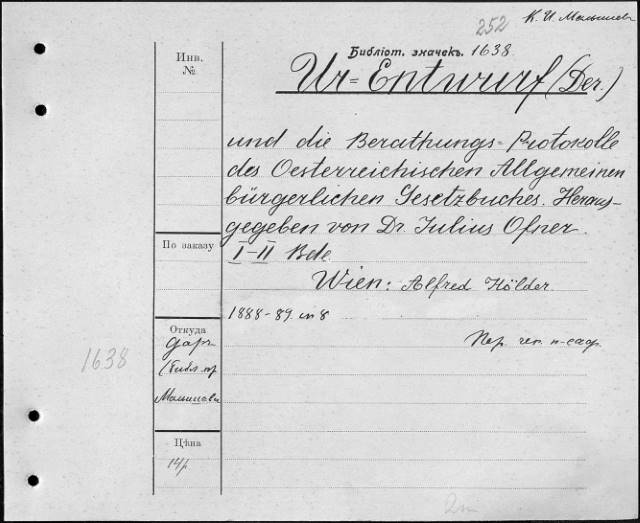 252 К. И. Малышев
Инв.
№
Библіот. значекъ. 1638.
Ur=Entwurf (Der.)
und die Berathungs=Protokolle
des Oesterreichischen Allgemeinen
bürgerlichen Gesetzbuches. Heraus-
gegeben von Dr. Julius Ofner.
По заказу
I-II Bde
Wien: Alfred Hölder.
1888-89. in 8
Откуда
даръ
Малышева
1638
Цѣна
14р